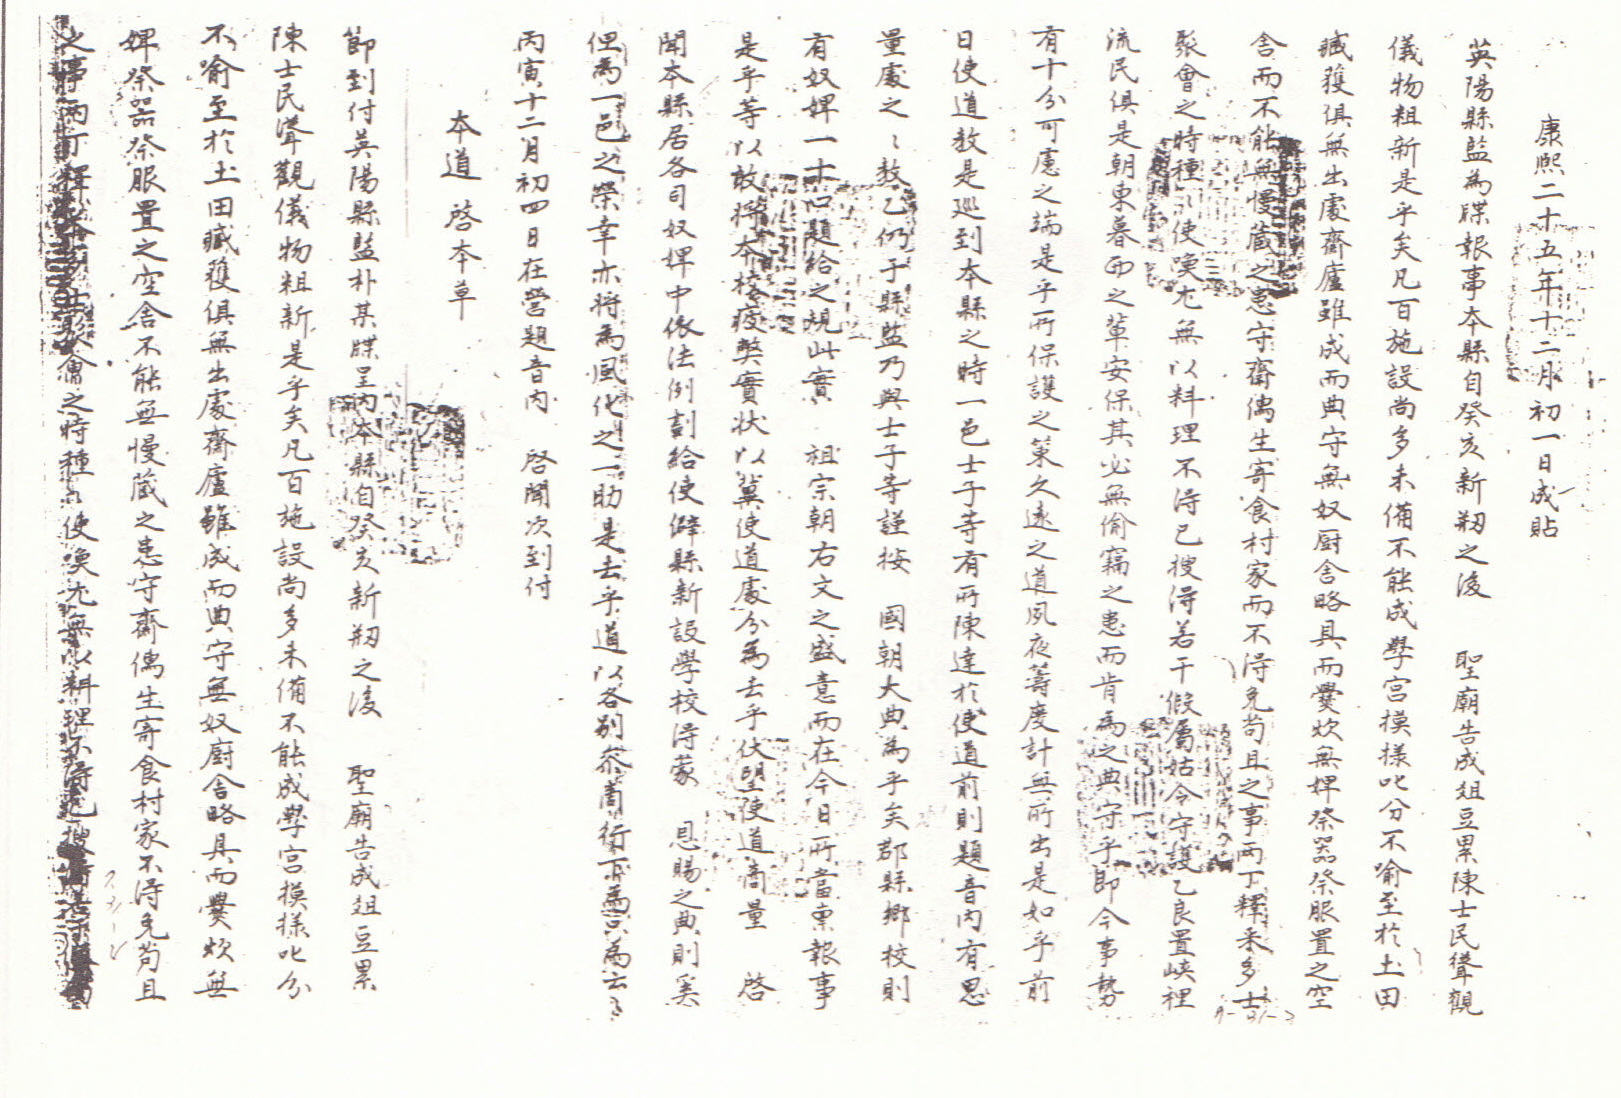 康熙二十五年十二月初一日成貼
英陽縣監為牒報事本縣自癸亥新刱之後 聖廟告成俎豆累陳士民聳觀
儀物粗新是乎矣凡百施設尚多未備不能成學宮摸樣叱分不喻至於土田
臧獲俱無出處齋廬雖成而典守無奴廚舍略具而爨炊無婢祭器祭服置之空
舍而不能無慢藏之患守齋儒生寄食村家而不得免苟且之事兩丁釋釆多士
聚會之時種〻使喚尤無以料理不得已搜得若干假屬姑令守護乙良置峽裡
流民俱是朝東暮西之輩安保其必無偷竊之患而肯為之典守乎即今事勢
有十分可慮之端是乎所保護之策久遠之道夙夜籌度計無所出是如乎前
日使道教是巡到本縣之時一邑士子等有所陳達於使道前則題音內有思
量處之〻教乙仍于縣監乃與士子等謹按 國朝大典為乎矣郡縣鄉校則
有奴婢一十口題給之規此實 祖宗朝右文之盛意而在今日所當稟報事
是乎等以敢將本校疲弊實狀以冀使道處分為去乎伏望使道商量 啓
聞本縣居各司奴婢中依法例劃給使僻縣新設學校得蒙 恩賜之典則奚
但為一邑之榮幸亦將為風化之一助是去乎道以各別參商行下為只為云〻
丙寅十二月初四日在營題音內 啓聞次到付
本道 啓本草
節到付英陽縣監朴某牒呈內本縣自癸亥新刱之後 聖廟告成俎豆累
陳士民聳觀儀物粗新是乎矣凡百施設尚多未備不能成學宮摸樣叱分
不喻至於土田臧獲俱無出處齋廬雖成而典守無奴廚舍略具而爨炊無
婢祭器祭服置之空舍不能無慢藏之患守齋儒生寄食村家不得免苟且
之事兩丁釋釆多士聚會之時種〻使喚尤無以料理不得已搜得